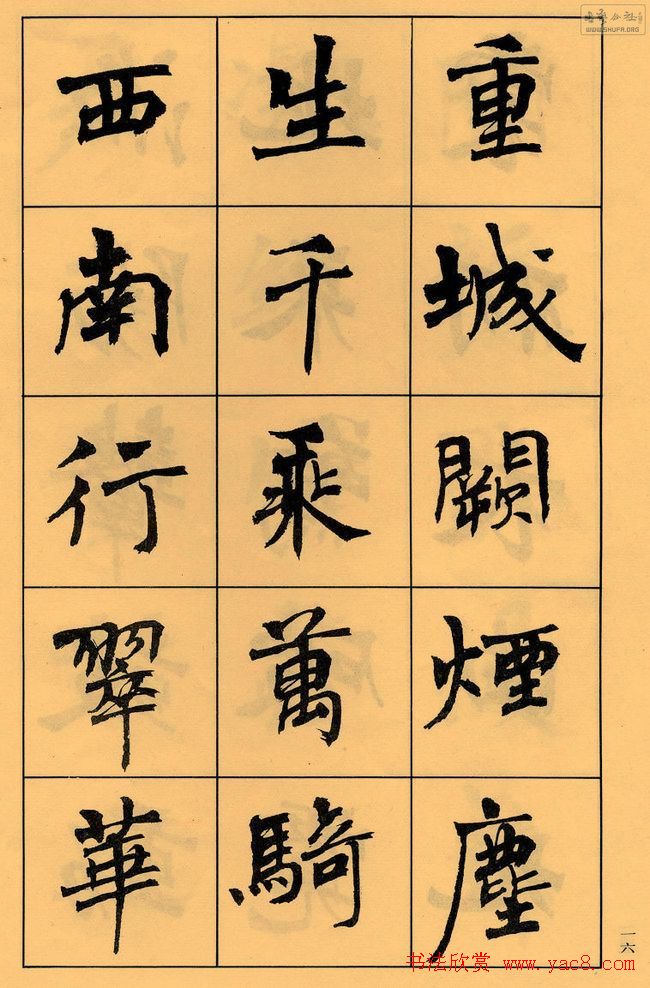 重城闕煙塵
生千乘萬騎
西南行翠華
一六
WWW.SHUFA.ORG
书法欣赏 www.yac8.com